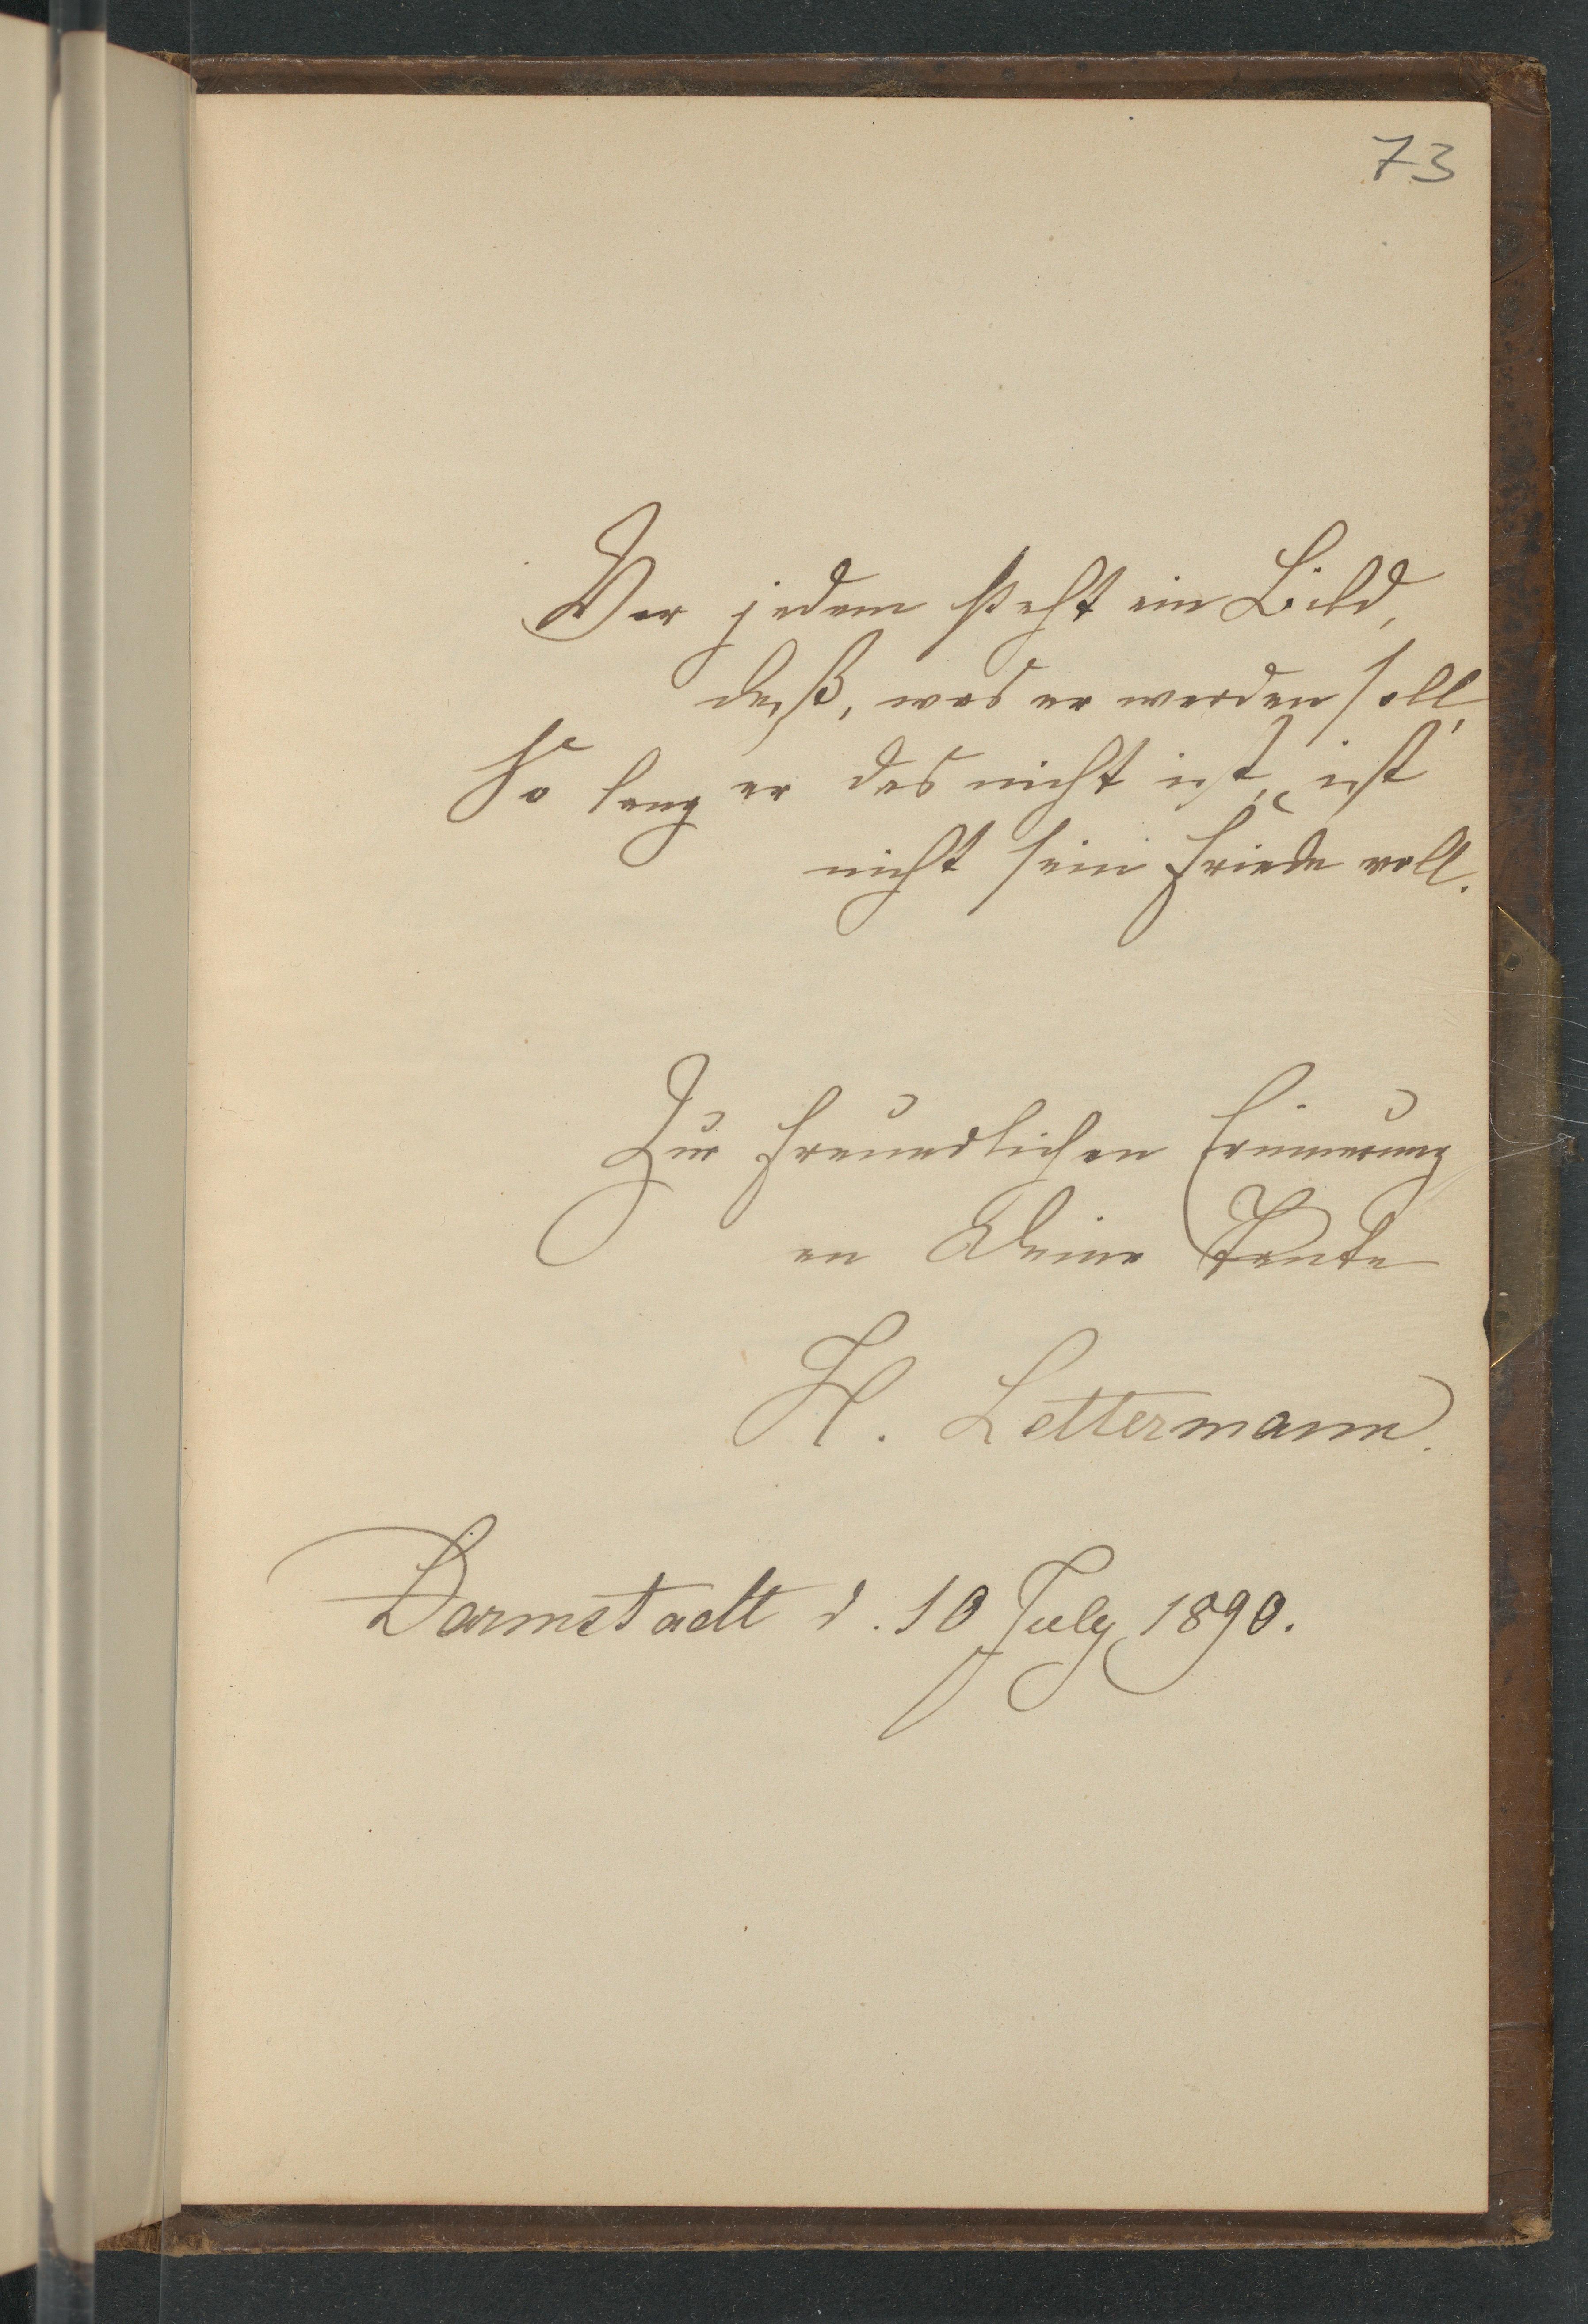 73
Vor jedem steht ein Bild,
deß, was er werden soll,
So lang er das nicht ist, ist
nicht sein Friede voll.
Zur freundlichen Erinnerung
an Deine Tante
H. Lettermann.
Darmstadt d. 10 July 1890.